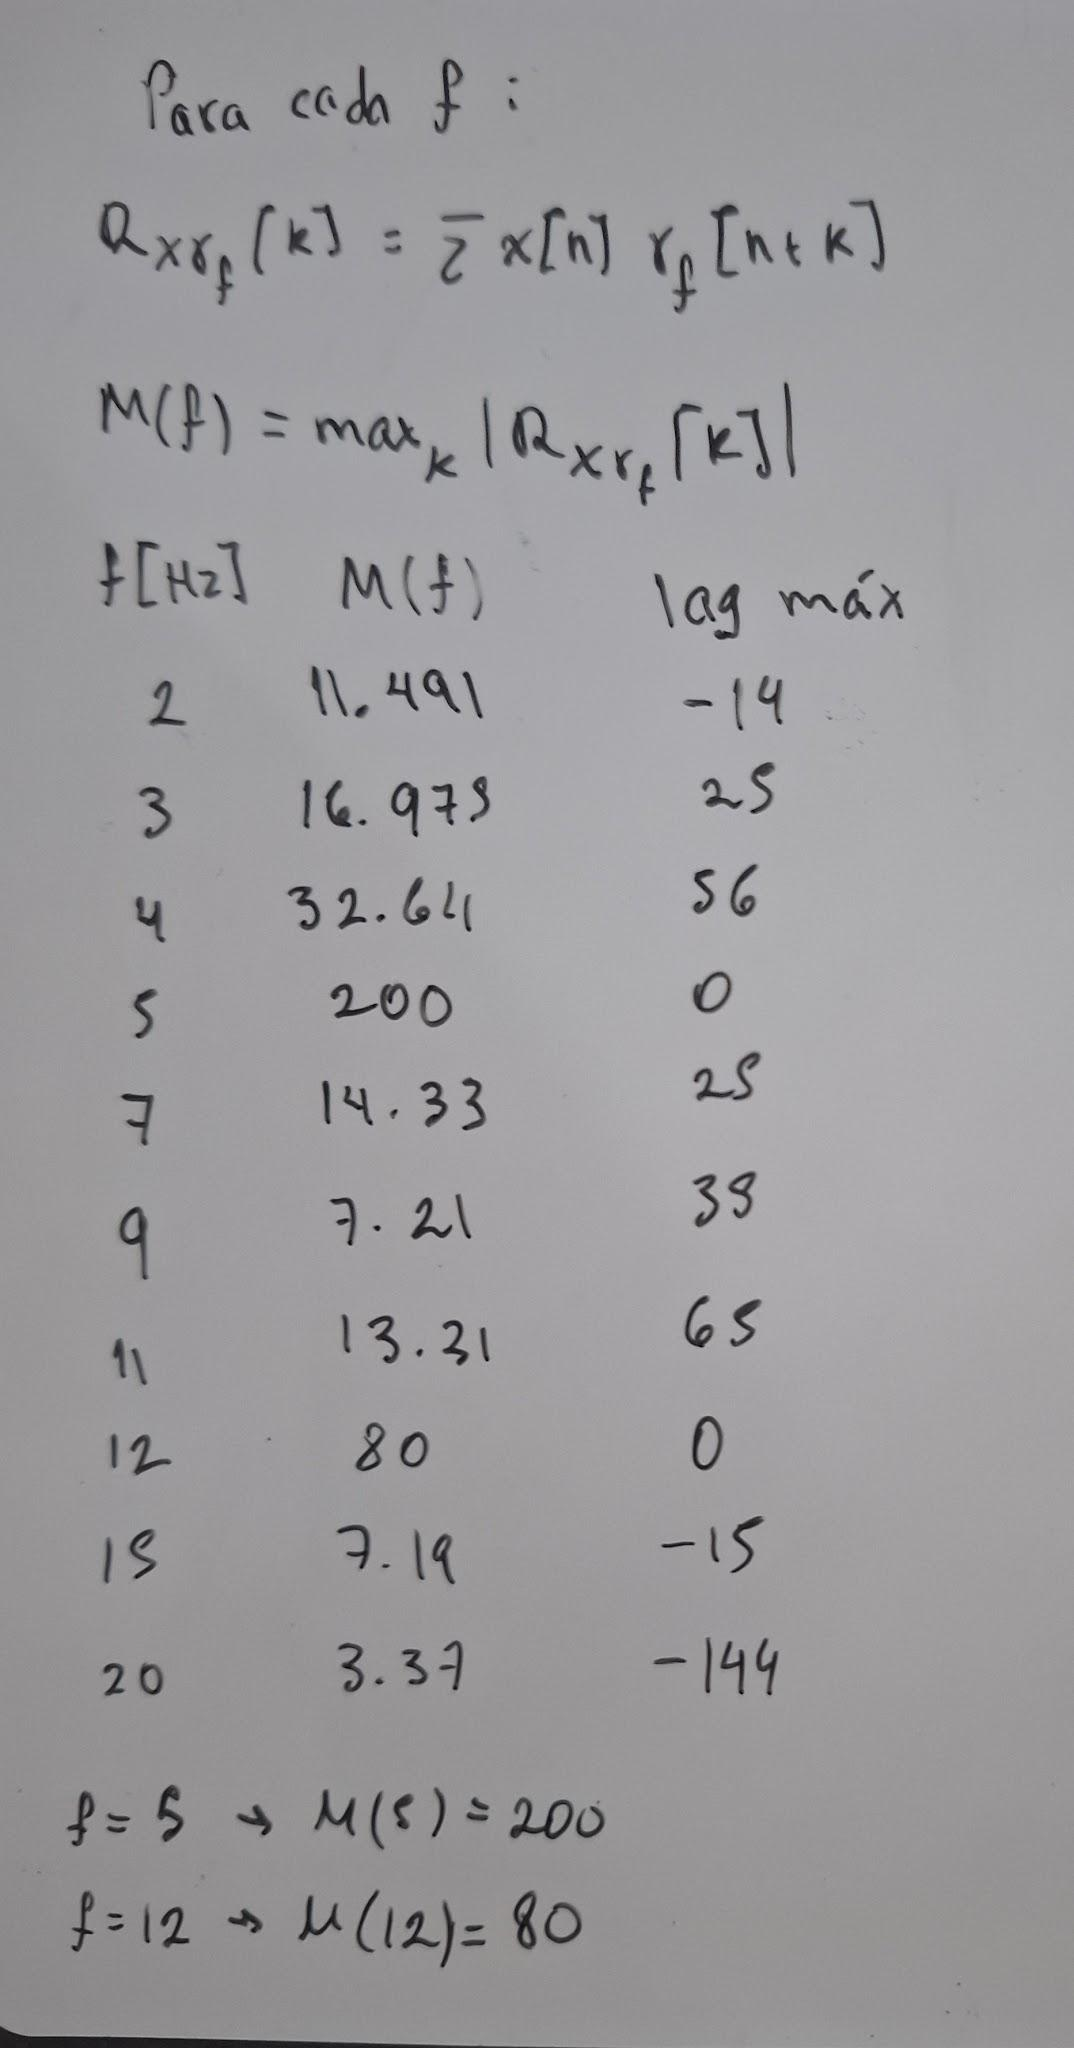 Para cada f :
Rxrf[k] = Σ x[n] rf[n+k]
M(f) = maxk |Rxrf[k]|
f[Hz] M(f) lag máx
2 11.491 -14
3 16.975 25
4 32.64 56
5 200 0
7 14.33 25
9 7.21 39
11 13.31 65
12 80 0
15 7.19 -15
20 3.37 -144
f=5 → M(5)=200
f=12 → M(12)=80